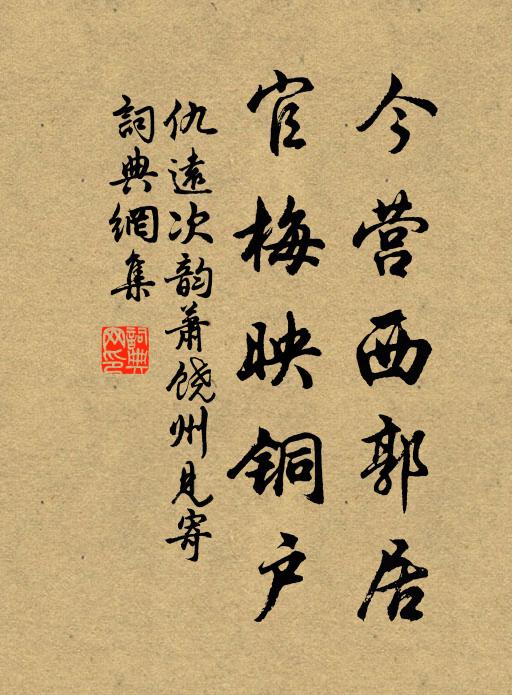 今营西郭居
官梅映铜户
仇遠次韵萧饶州見寄
詞典網集
詞典网印